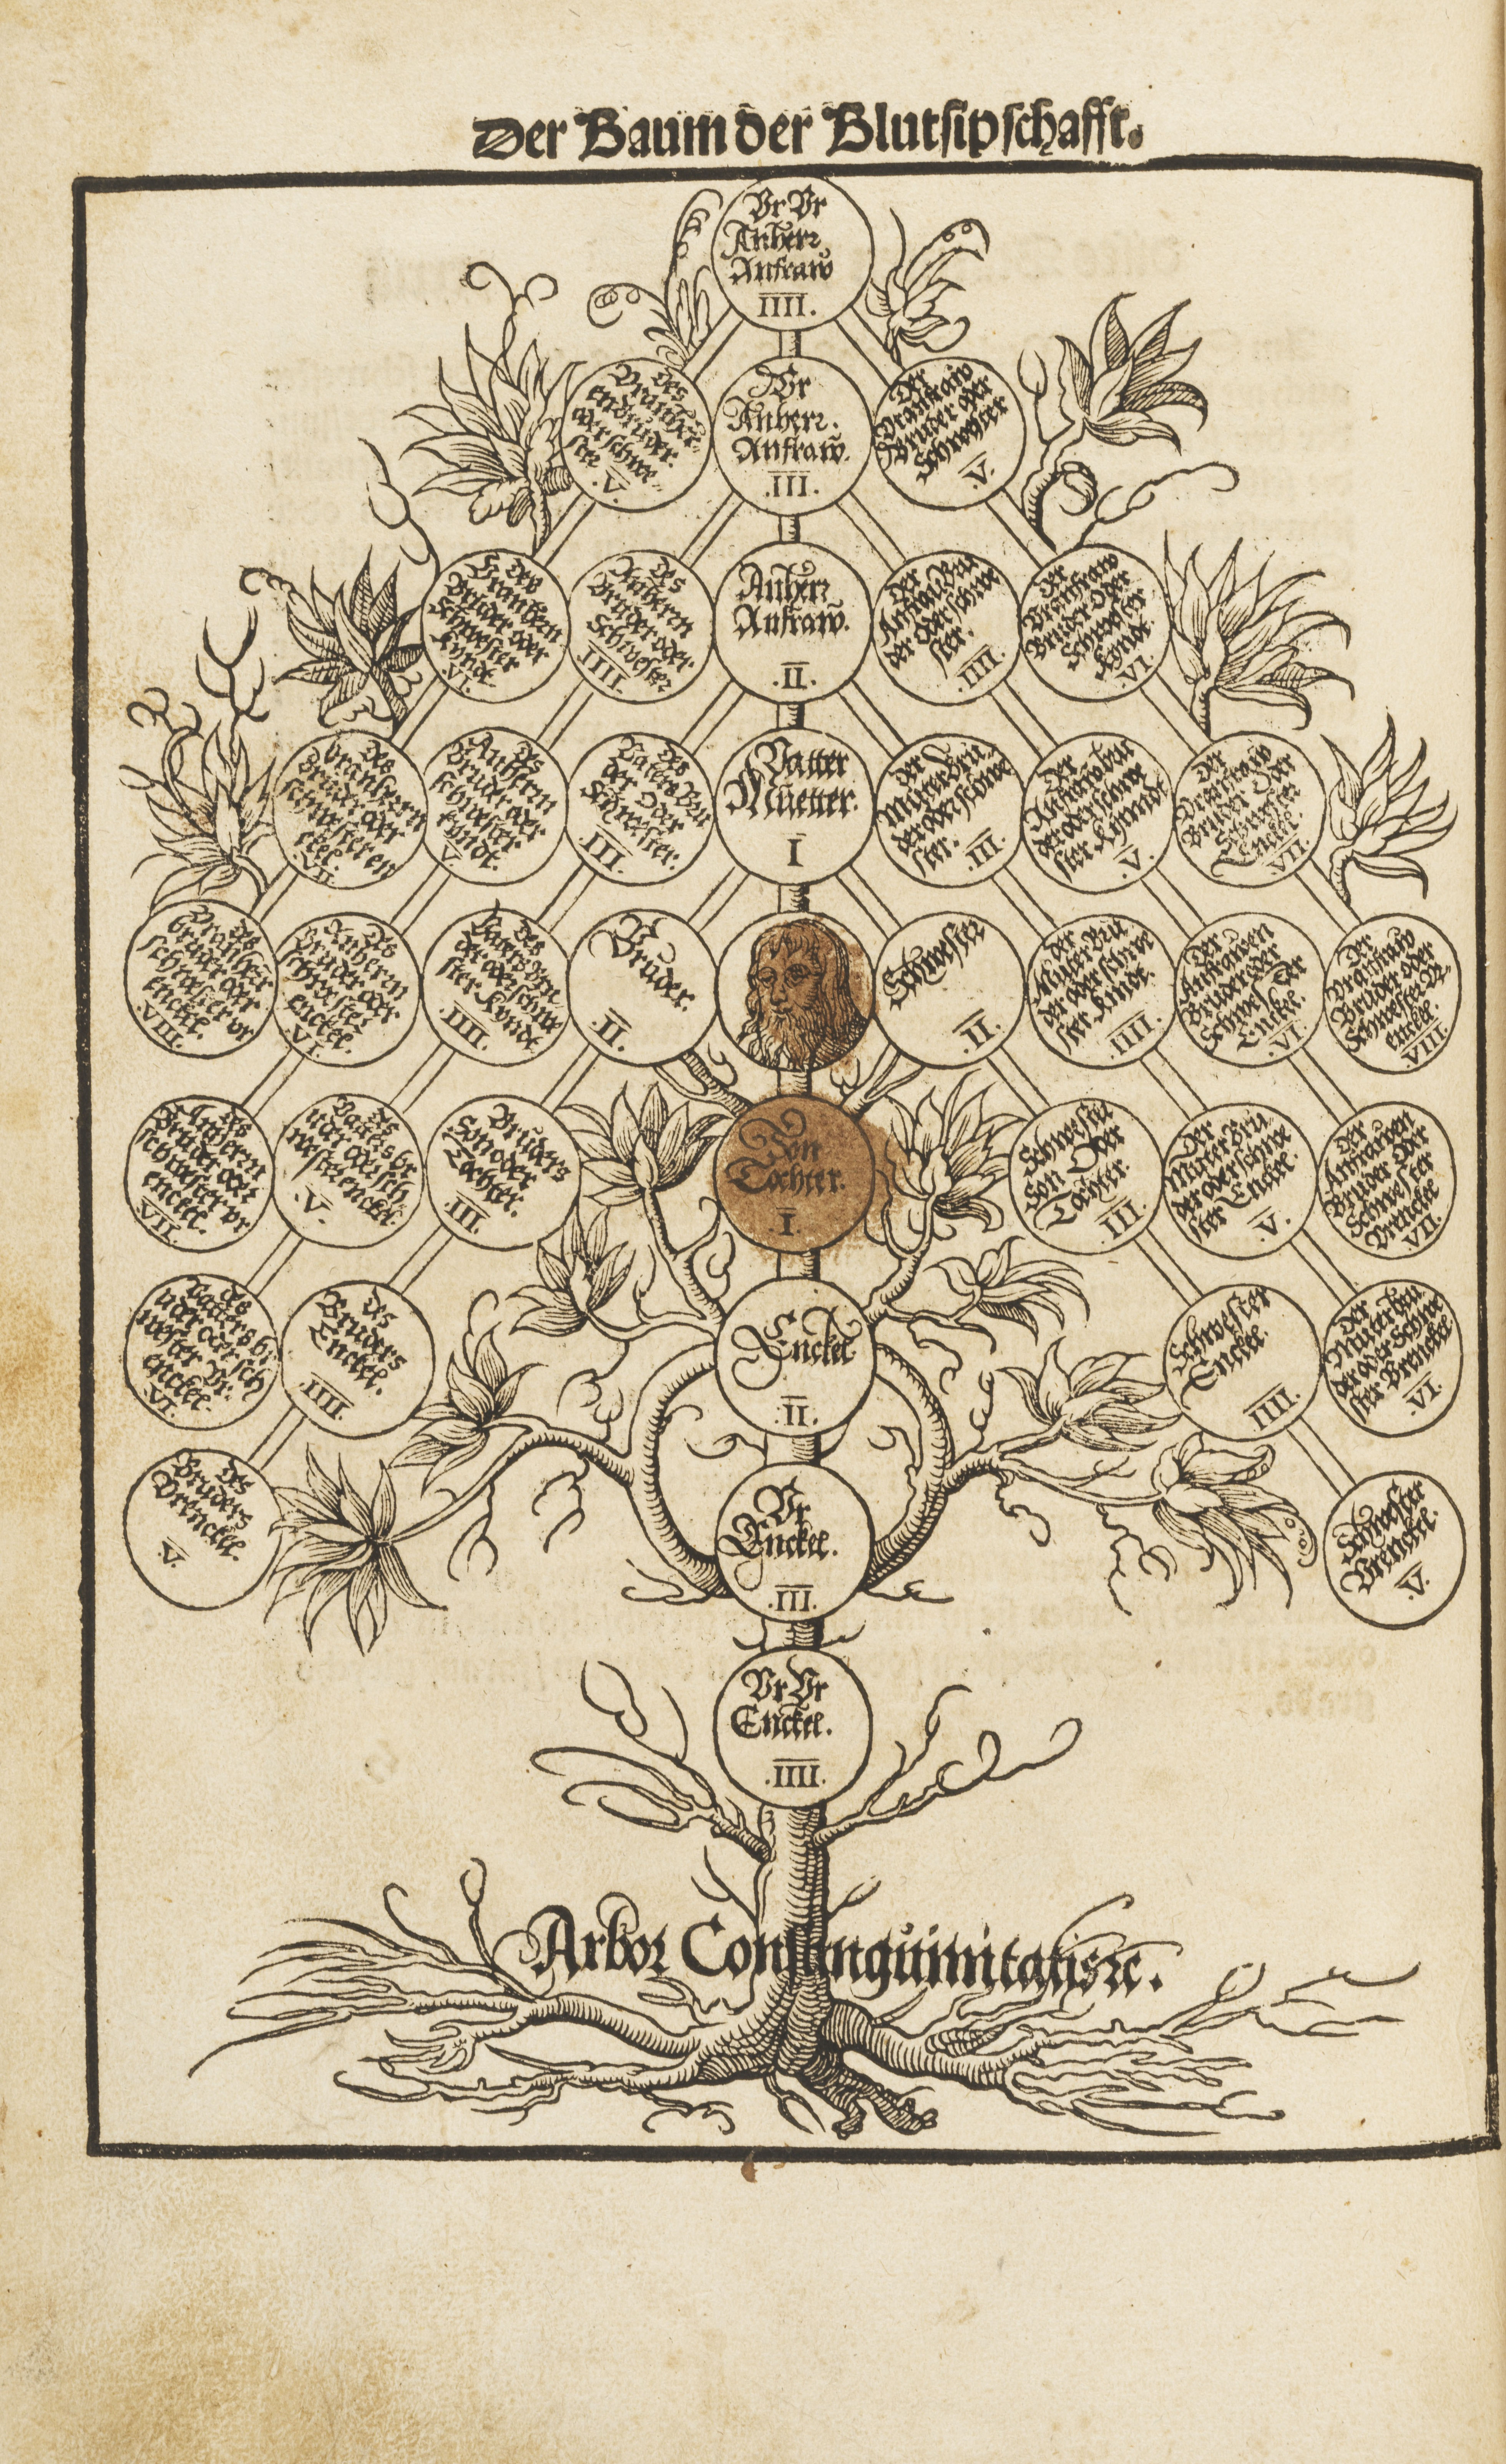 Der Baum der Blutsipschafft.
Vr Vr
Anherr
Anfraw̃
IIII.
Des
Vranher-
enbruder
oder schwe-
ster
.V.
Vr
Anherr.
Anfraw̃.
.III.
Der
Vranfraw
Bruder oder
Schwester
.V.
Des
Bruder oder
Schwester
Kyndt
VI.
Des
Anherrn
Bruder oder
Schwester
IIII.
Anherr
Anfraw̃.
.II.
Der
der oder schwe
ster.
.III.
Der
Vranfraw
Bruder oder
Schwester
Kyndt.
.VI.
Des
Vranherrn
Bruder oder
schwester en
ckel.
Des
Anherrn
Bruder oder
schwester
kyndt.
V.
Des
Vatters Bru
der oder
Schwester.
.III.
Vatter
Mũetter.
I
Der
Muter Bru
der oder schwe
ster.
.III.
Der
Anfraw bru
der oder schwe
ster Kynndt
.V.
Der
Vranfraw
Bruder oder
Schwester
Enckel.
.VII.
Des
Vranherr
bruder oder
schwester vr
enckel.
.VIII.
Des
Anherrn
Bruder oder
schwester
enckel.
.VI.
Des
Vaters Bru
der oder schwe
ster Kyndt
.IIII.
Bruder.
.II.
Schwester
.II.
Der
Muter Bru
der oder schwe
ster Kindt.
.IIII.
Der
Anfrawen
Bruder oder
Schwester
Enckel.
.VI.
Der
Vranfraw
Bruder oder
Schwester Vr-
enckel.
.VIII
Des
Anherrn
Bruder oder
schwester vr
enckel.
.VII.
Des
Vatters br
uder oder sch
wester enckel.
.V.
Bruders
Son oder
Tochter.
.III.
Son
Tochter.
.I.
Schwester
Son Oder
Tochter.
.III.
Der
Muter Bru
der oder schwe
ster Enckel.
.V.
Der
Anfrawen
Bruder oder
Schwester
Vrenckel
.VII.
Des
Vatters br
uder oder sch
wester Vr-
enckel.
.VI.
Des
Bruders
Enckel.
.IIII.
Enckel
.II.
Schwester
Enckel.
.IIII.
Der
Muter bru
der oder Schwe
ster Vrenckel
.VI.
Des
Bruders
Vrenckel.
.V.
Vr
Enckel.
.III.
Schwester
Vrenckel.
.V.
Vr Vr
Enckel.
.IIII.
Arbor Consanguinitatis ꝛc.